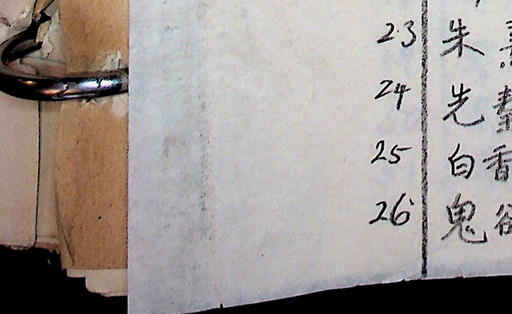 23 朱
24 先
25 白香
26 鬼